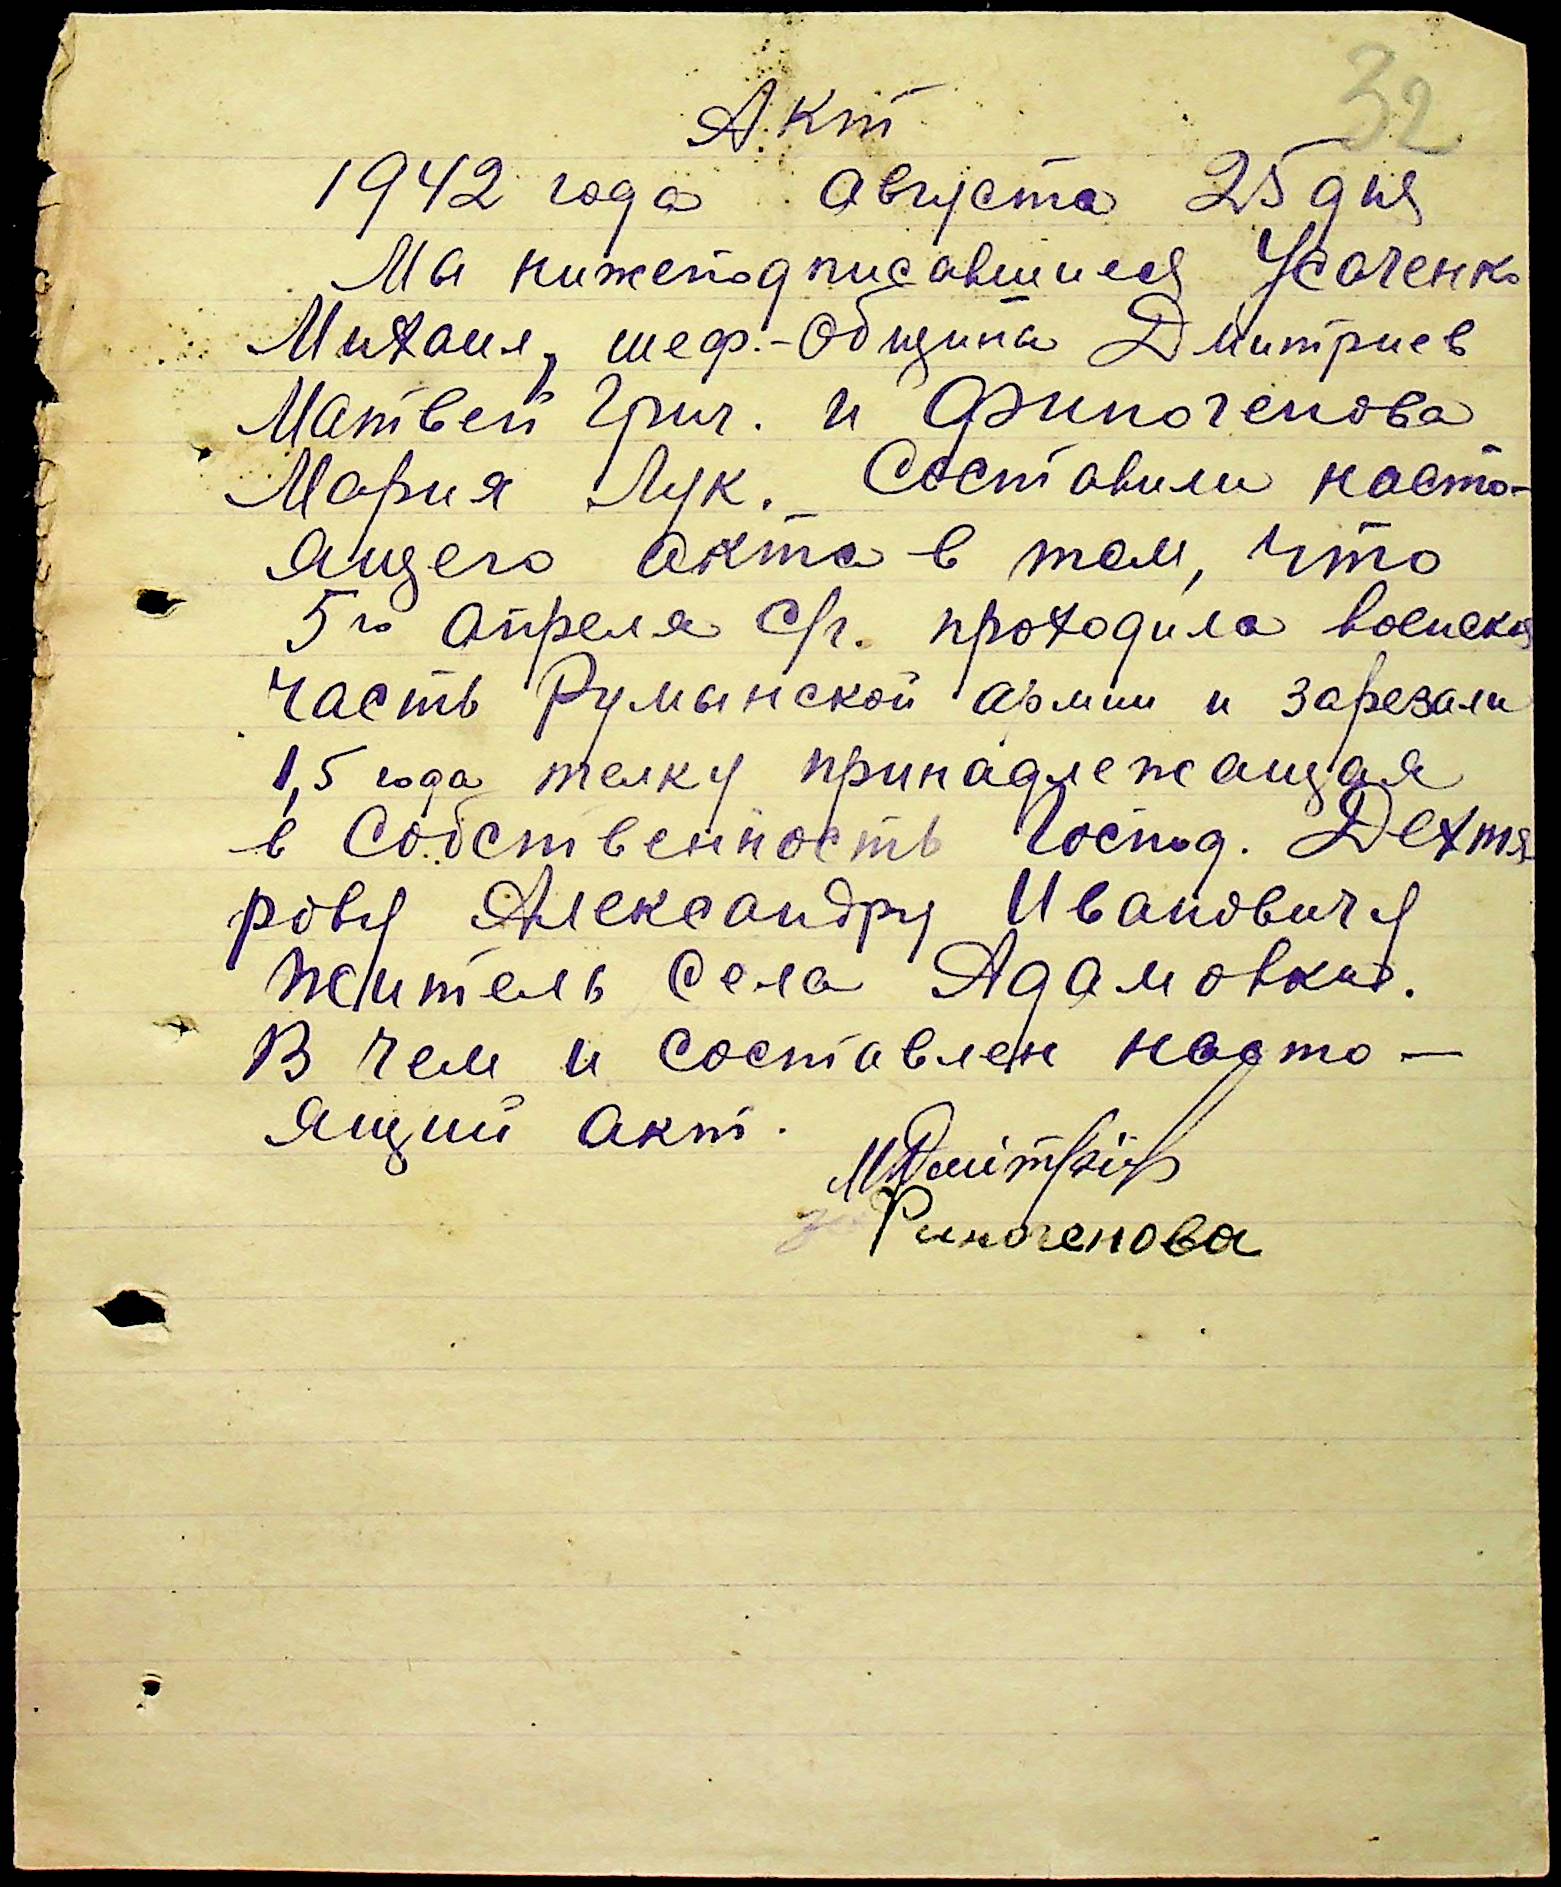 32
Акт
1942 года августа 25 дня
Мы нижеподписавшиеся Усаченко
Михаил, шеф.-общипа Дмитриев
Матвей Григ. и Финогенова
Мария Лук. Составили насто-
ящего акта в том, что
5го апреля с/г. проходила воиская
часть Румынской армии и зарезали
1,5 года телку принадлежащая
в собственность Господ. Дехтя
рову Александру Ивановичу
житель села Адамовки.
В чем и составлен насто-
ящий акт.
МДмітріев
Финогенова